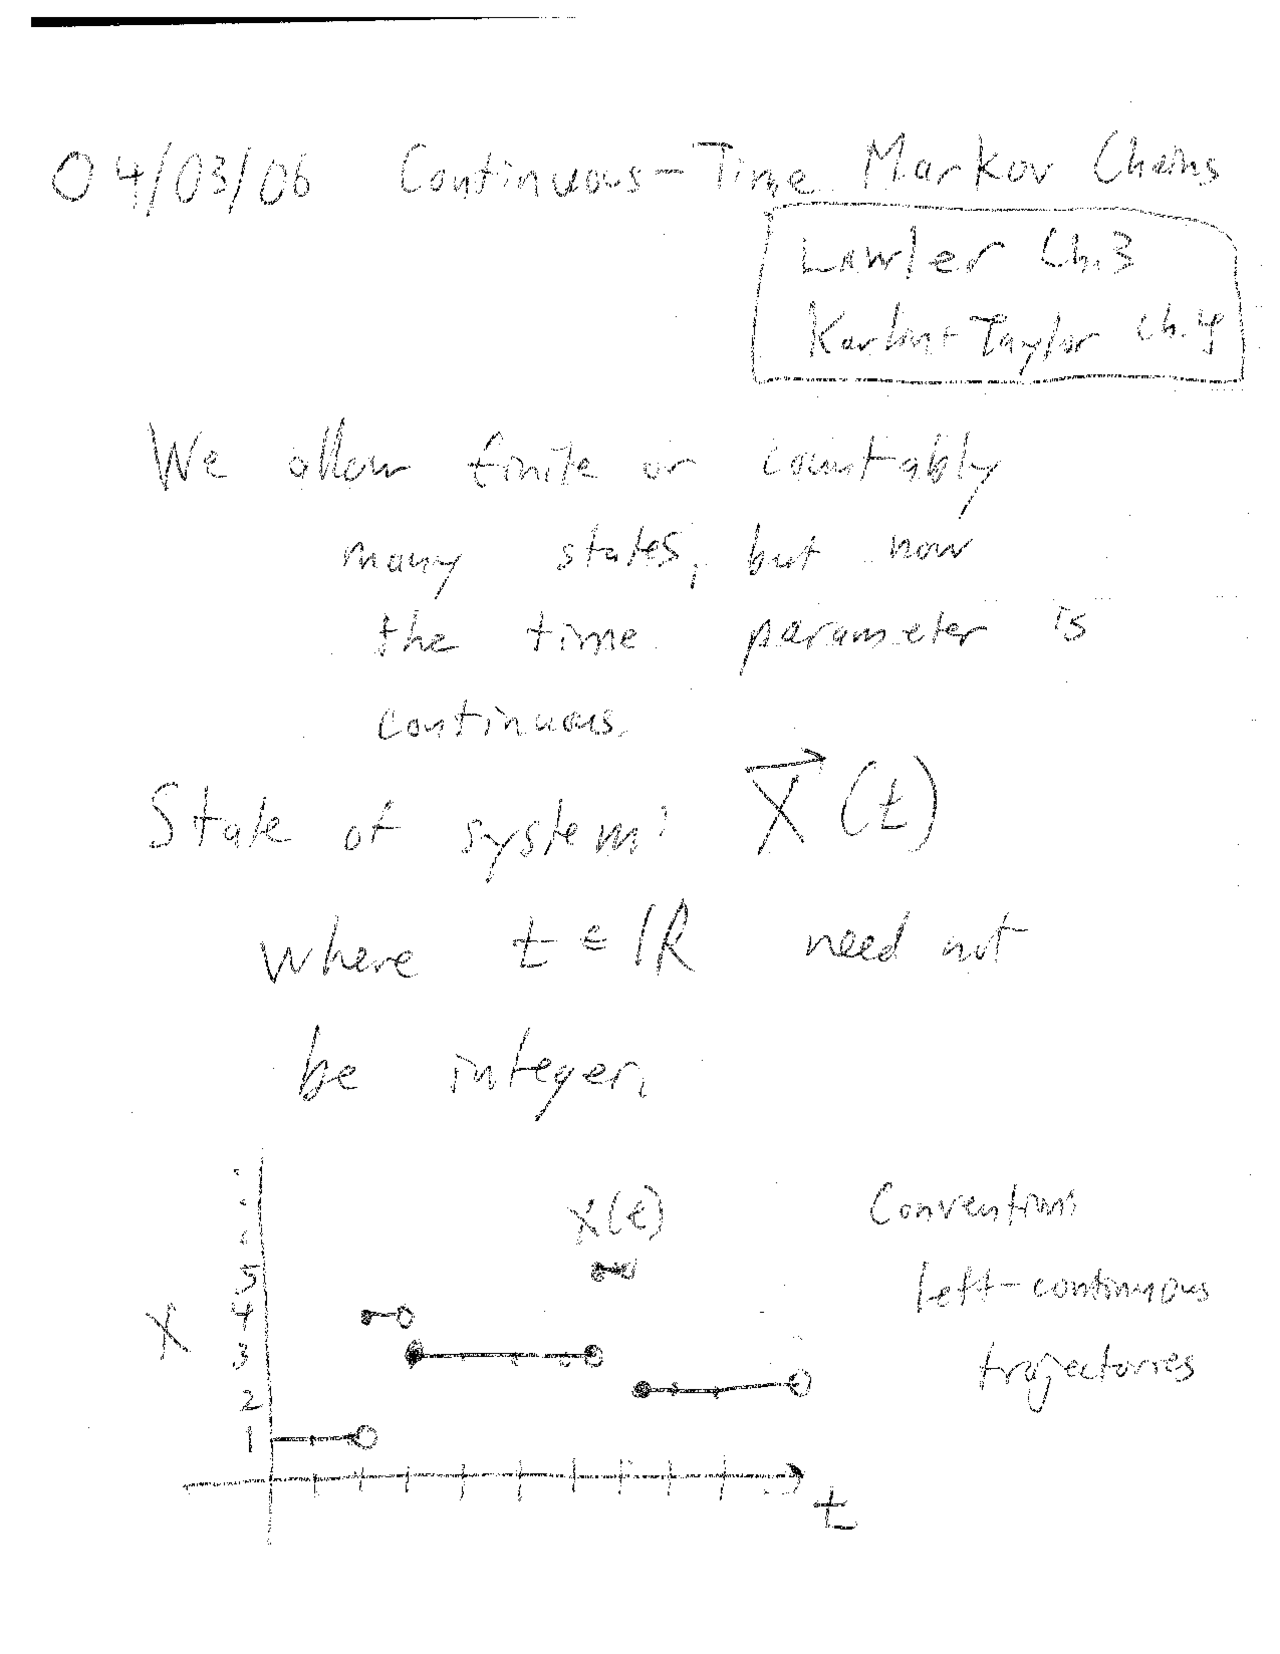 04/03/06 Continuous-Time Markov Chains
Lawler Ch.3
Karlin+Taylor Ch.4
We allow finite or countably
many states, but now
the time parameter is
continuous.
State of system: X(t)
where t ∈ ℝ need not
be integer.
X(t)
Convention:
left-continuous
trajectories
5
4
X
3
2
1
t